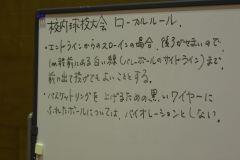 校内球技大会 ローカルルール.
・エンドラインからのスローインの場合、後ろがせまいので
1m程前にある白い線(バレーボールのサイドライン)まで
前に出て投げてもよいこととする。
・バスケットリングを上げるための黒いワイヤーに
ふれたボールについては、バイオレーションとしない。